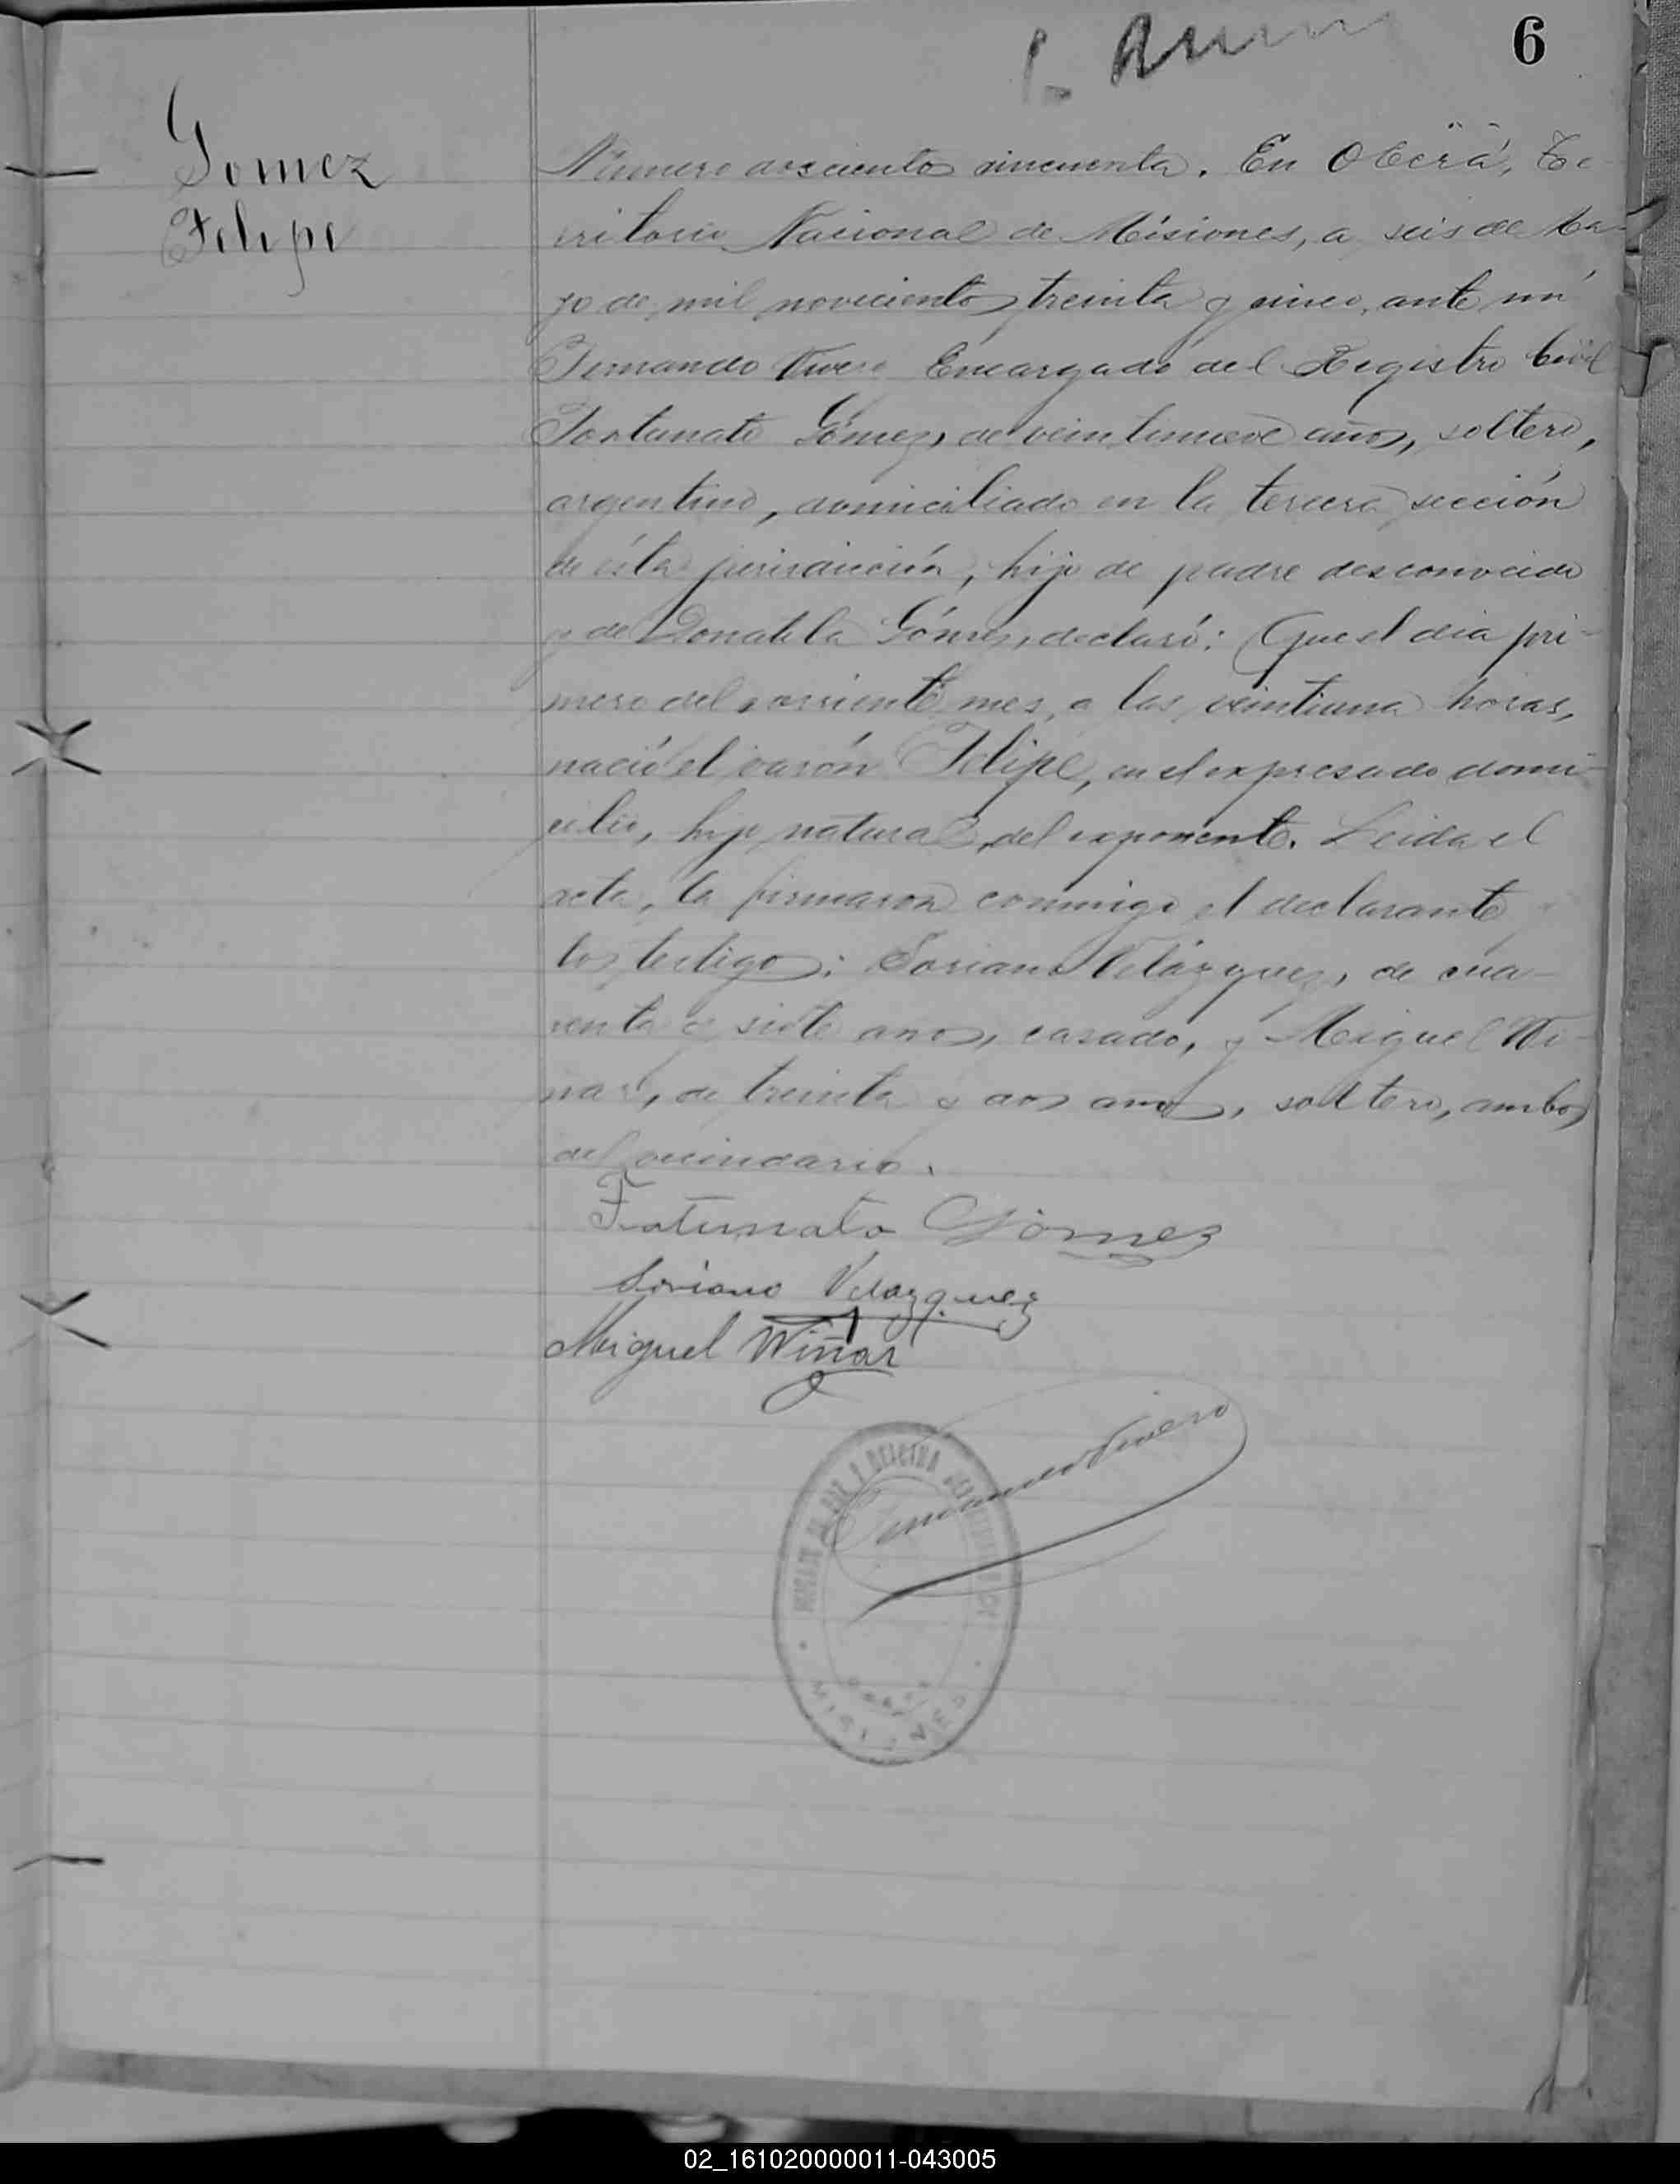 6
Gomez
Felipe
Número doscientos cincuenta. En Oberá, Te-
rritorio Nacional de Misiones, a seis de Ma-
yo de mil novecientos treinta y cinco, ante mí
Fernando Vivero Encargado del Registro Civil
Fortunato Gómez, de veintinueve años, soltero,
argentino, domiciliado en la tercera sección
de ésta jurisdicción, hijo de padre desconocido
y de Donatila Gómez, declaró: Que el día pri-
mero del corriente mes, a las veintiuna horas,
nació el varón Felipe, en el expresado domi-
cilio, hijo natural del exponente. Leida el
acta, la firmaron conmigo el declarante
los testigos: Soriano Velázquez, de cua-
renta y siete años, casado, y Miguel Wi-
ñar, de treinta y dos años, soltero, ambos
del vecindario.
Fortunato Gómez
Soriano Velazquez
Miguel Wiñar
Fernando Vivero
JUZGADO DE PAZ Y OFICINA DEL REGISTRO CIVIL
OBERÁ
MISIONES
02_161020000011-043005